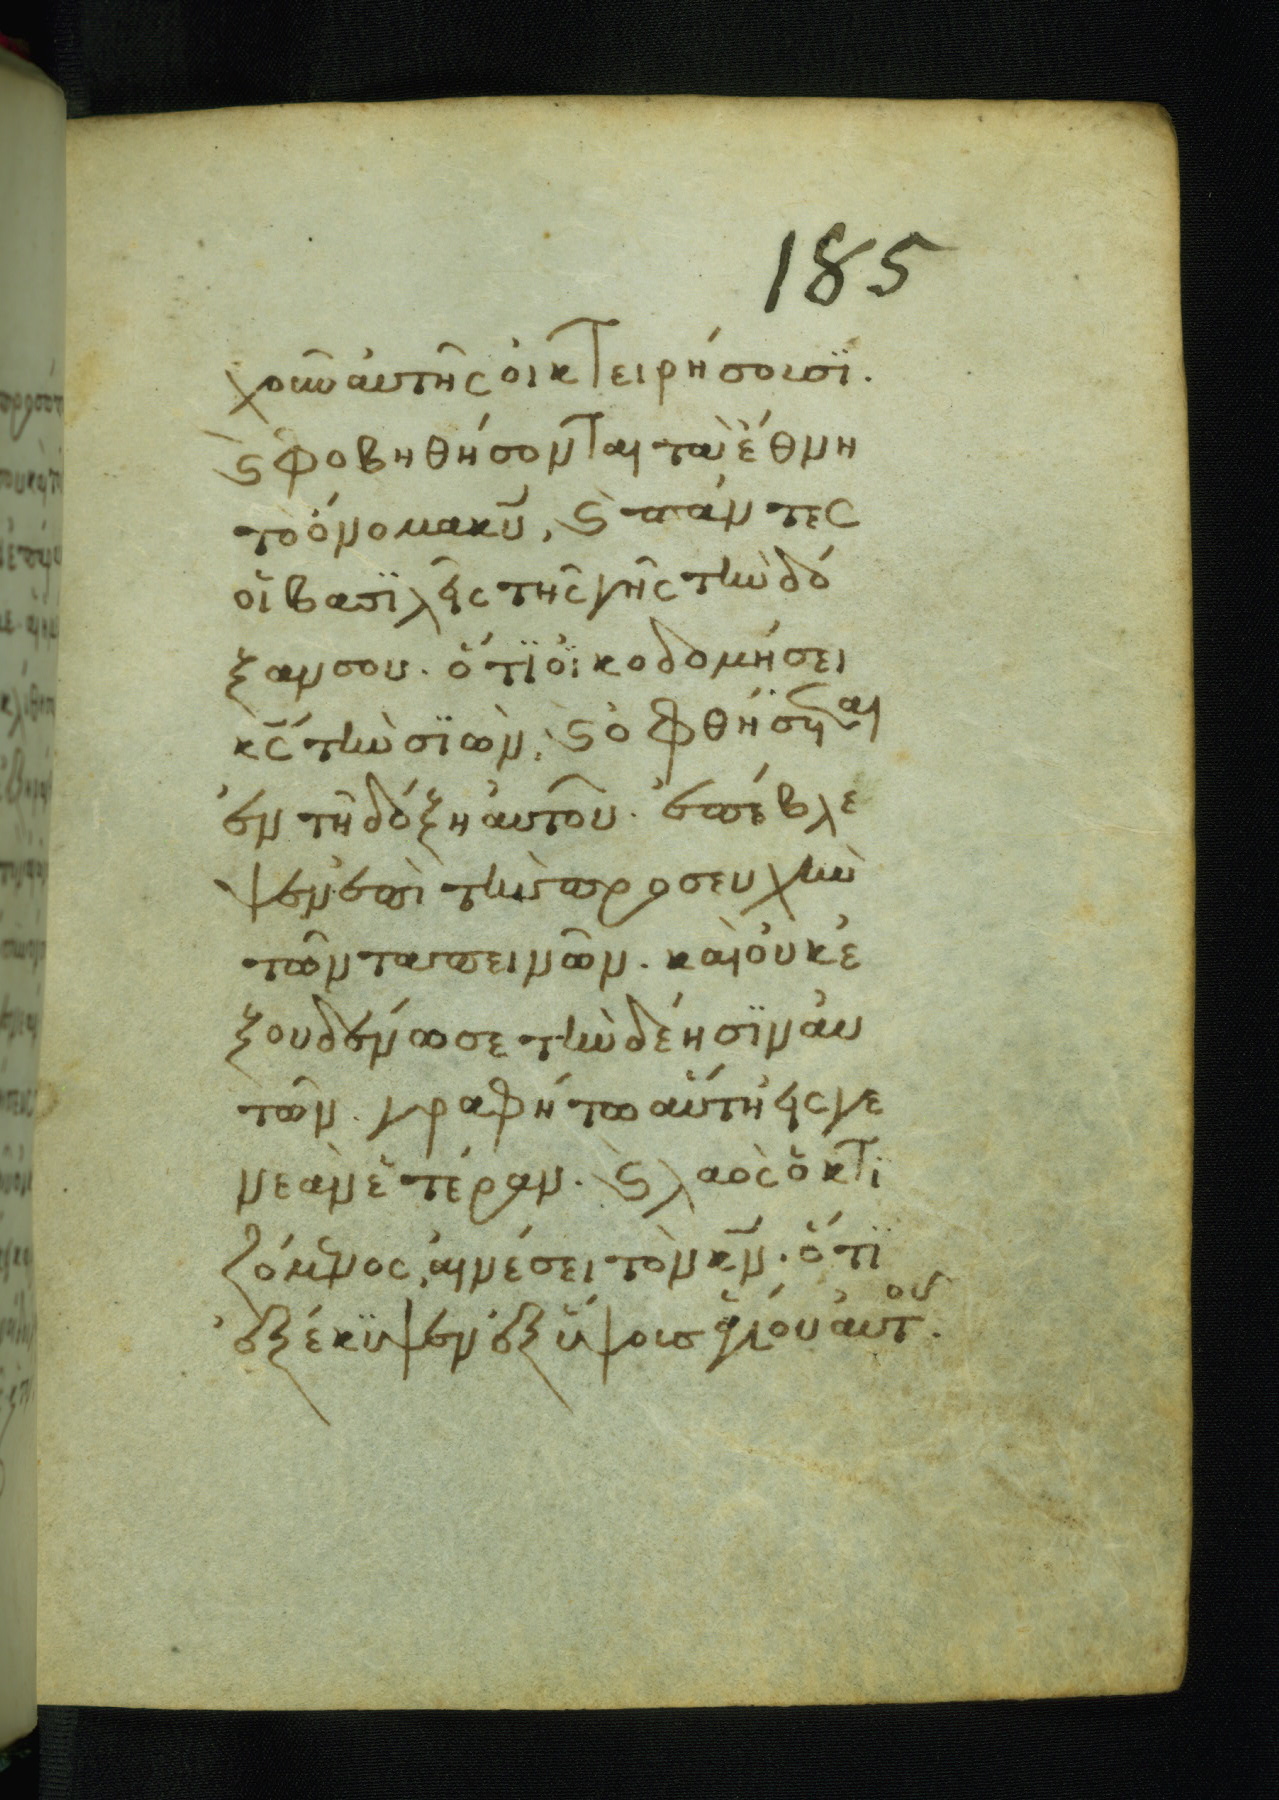 185
χοῦν αὐτῆς οἰκτειρήσουσϊ.
ϛ φοβηθήσονται τὰ ἔθνη
τὸ ὄνομα κῦ, ϛ πάντες
οἱ βασϊλεῖς τῆς γῆς τὴν δό
ξαν σου. ὅτϊ οἰκοδομήσει
κς τὴν σϊὼν, ϛ ὀφθήσεται
ἐν τῆ δόξη αὐτοῦ. ἐπέβλε
ψεν ἐπὶ τὴν προσευχὴν
τῶν ταπεινῶν. καὶ οὐκ ἐ
ξουδένωσε τὴν δέησϊν αὐ
τῶν. γραφήτω αὕτη εἰς γε
νεὰν ἑτέραν. ϛ λαὸς ὁ κτϊ
ζόμενος, αἰνέσει τὸν κν. ὅτϊ
ἐξέκϋψεν ἐξ ὕψους ἁγίου αὐτοῦ.